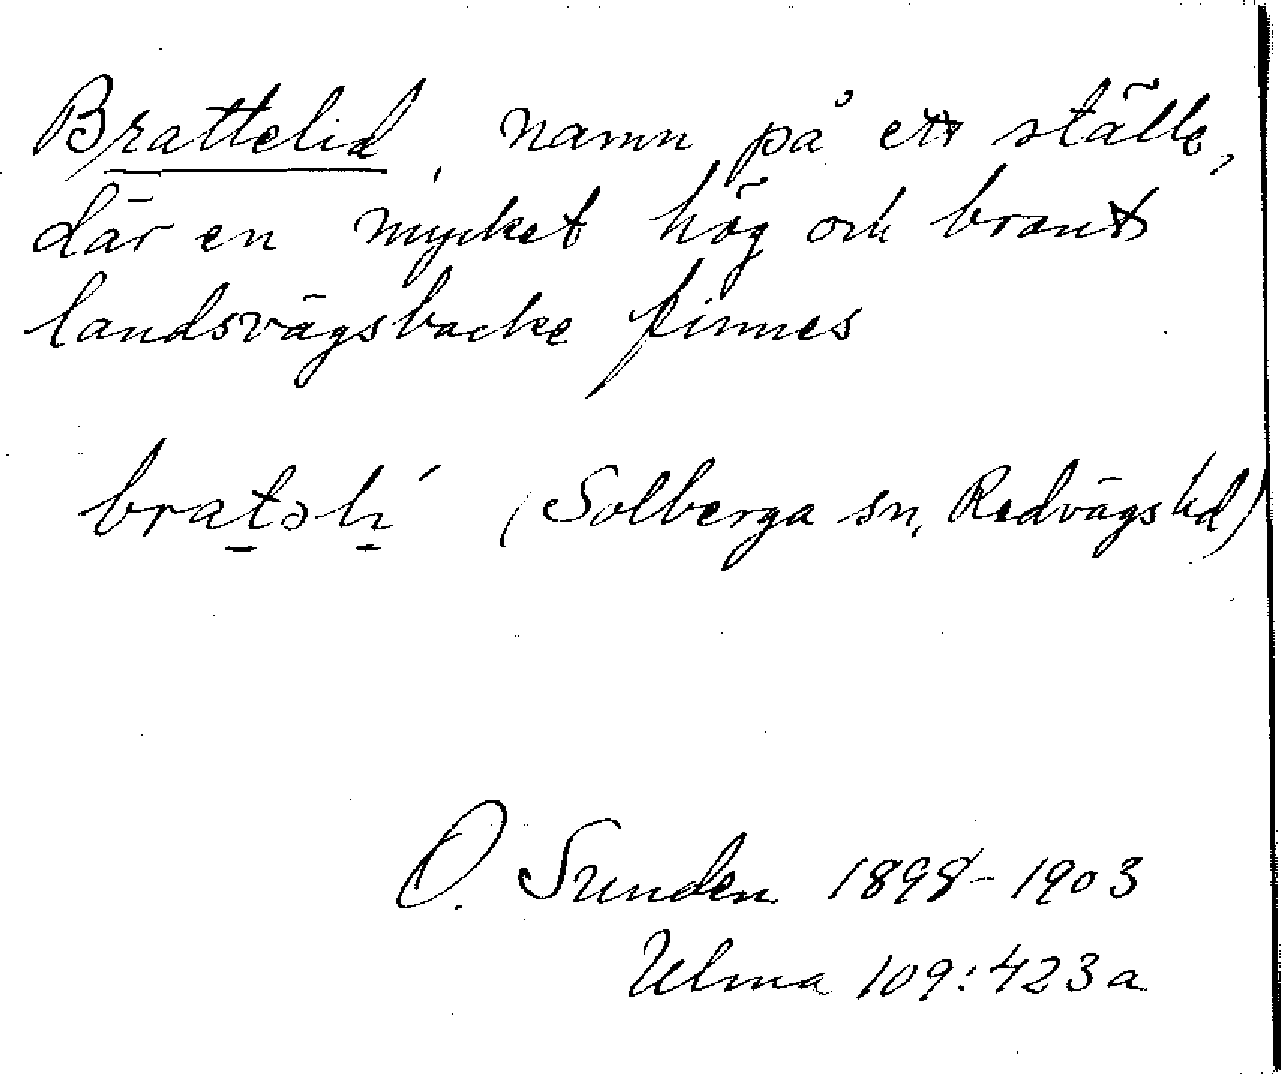 Brattelid, namn på ett ställe,
där en mycket hög och brant
landsvägsbacke finnes
(Solberga sn, Redvägs hd)
O. Sunden 1898-1903
Ulma 109:423a